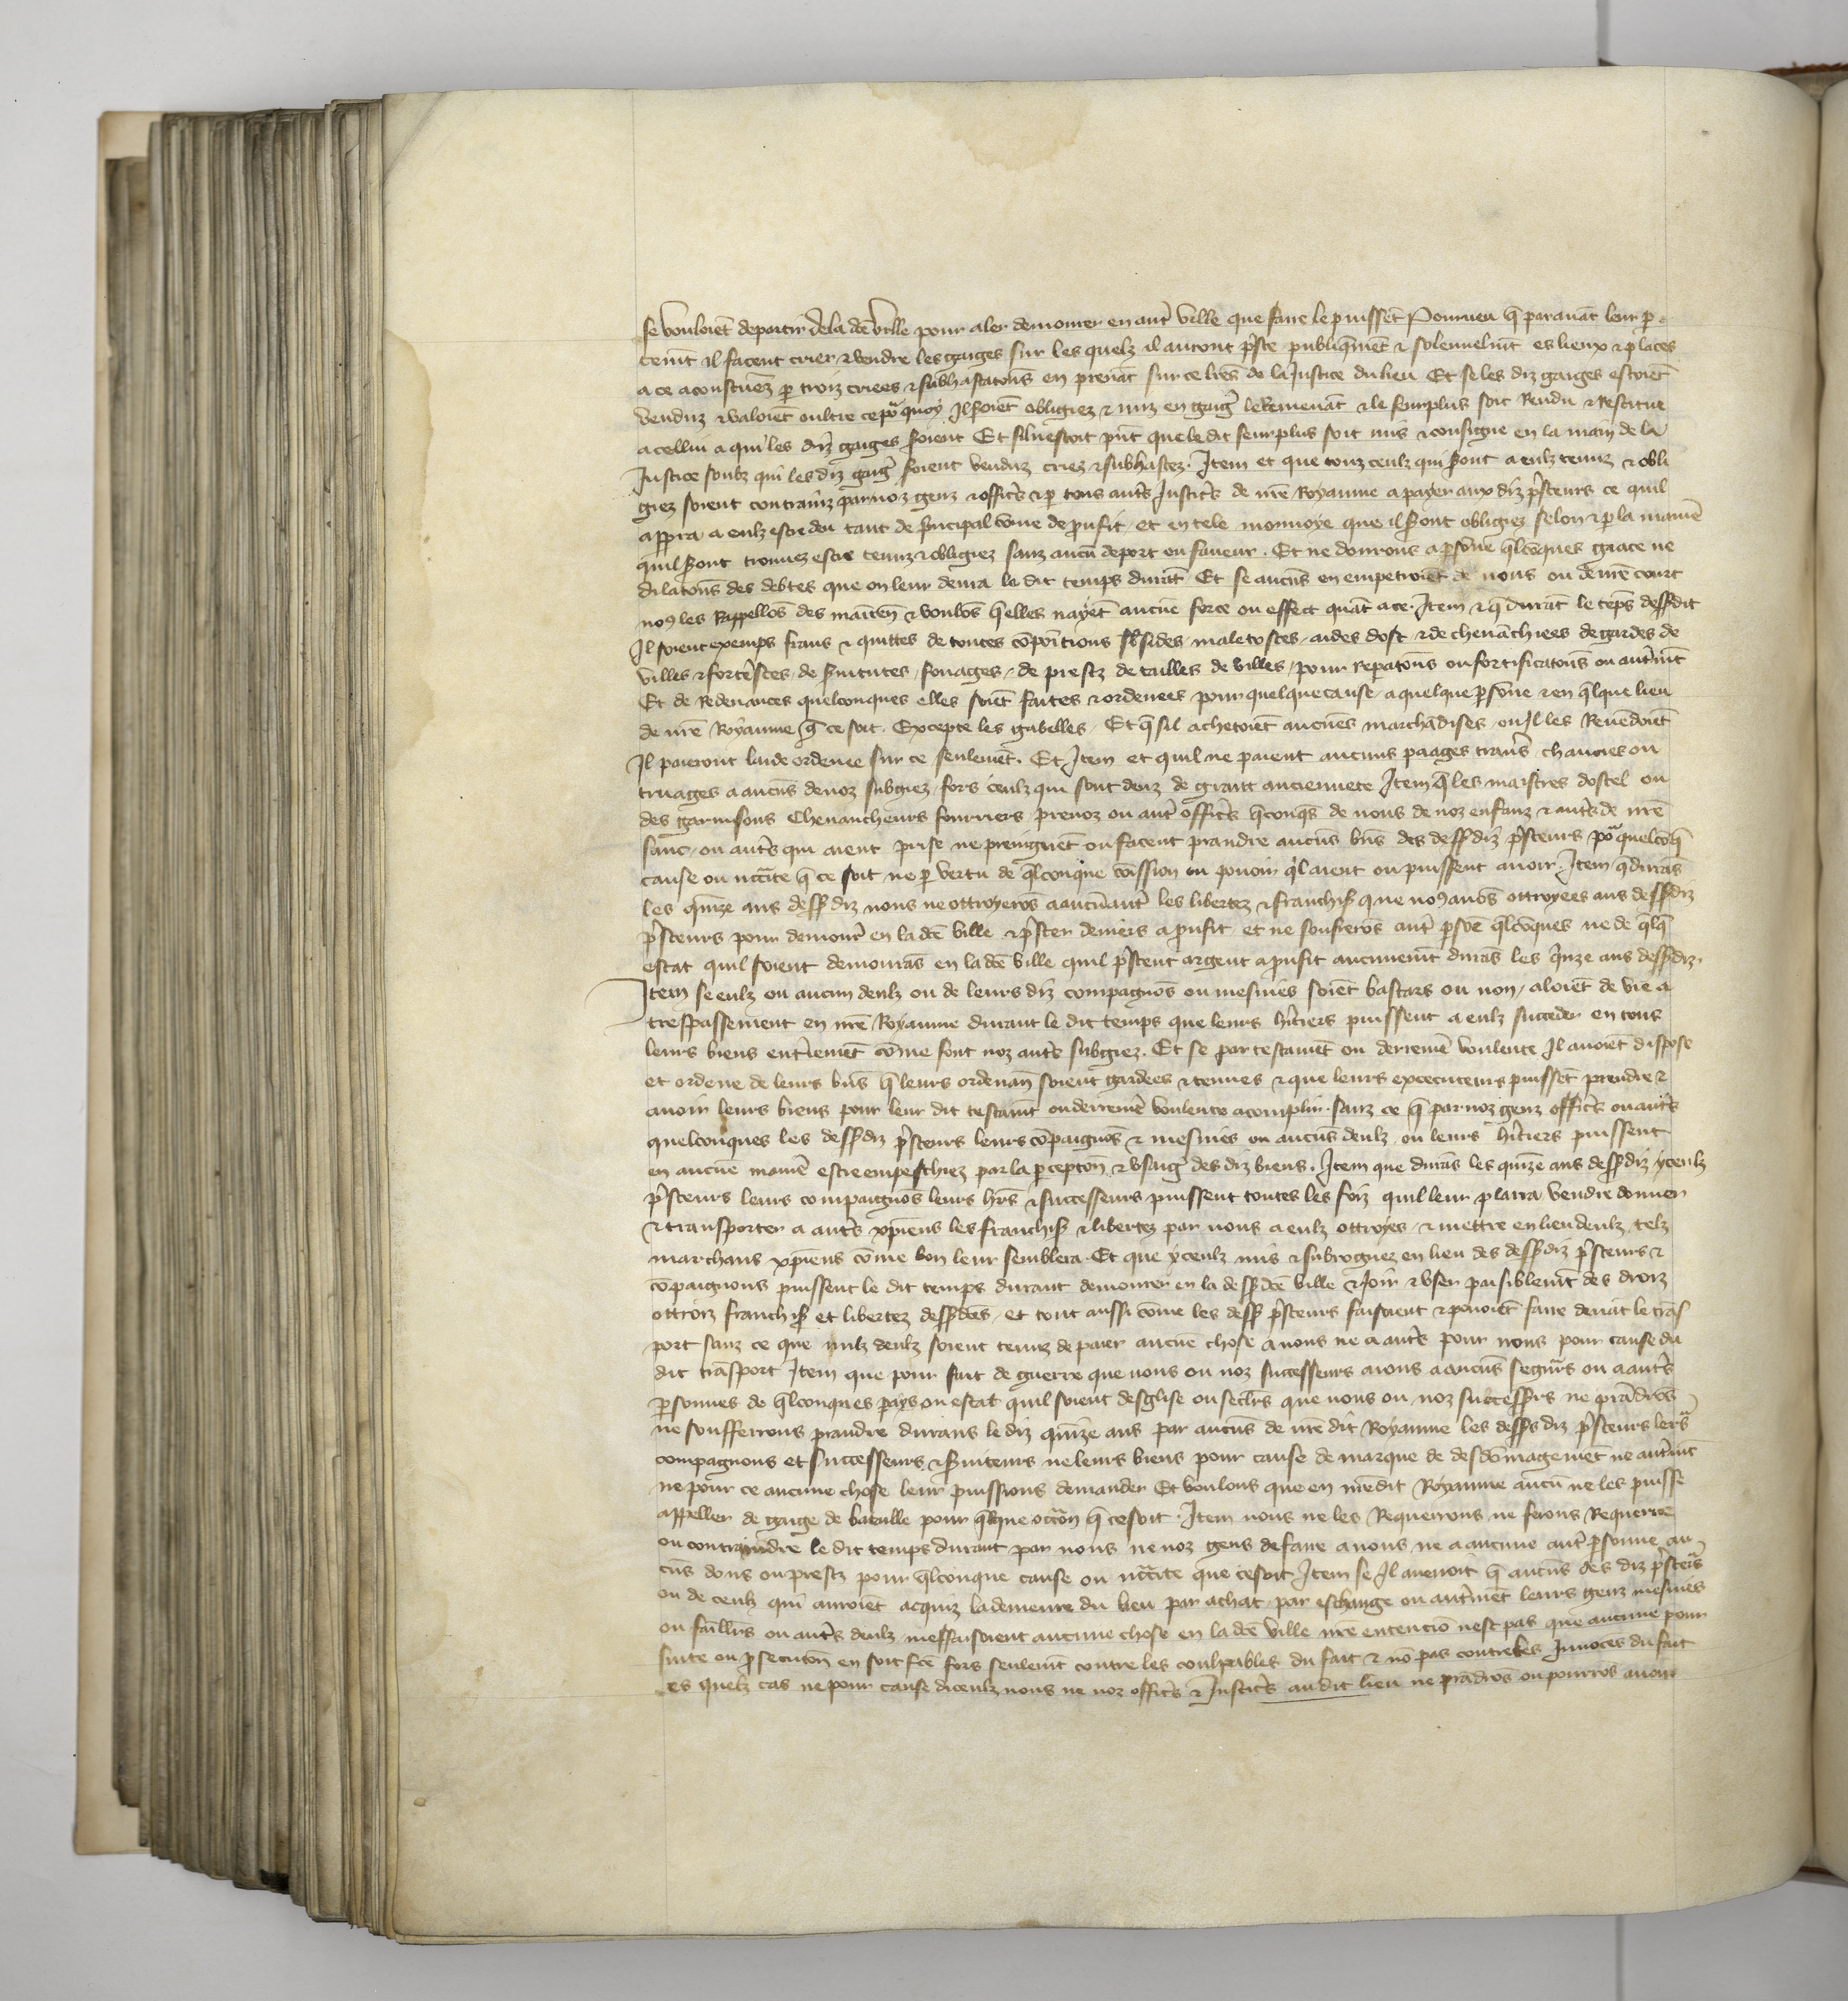 se vouloiēt departir dela dcē ville pour aler demourer en autr̄ ville que faire le puissēt Pourveu q̄ paravāt leur p̄
temīt il facent crier ⁊ vendre les gaiges sur les quelz il auront p̄ste publiq̄mēt ⁊ solennelmīt es lieux ⁊ places
a ce acoustuez p̄ troiz criees ⁊ subhastatōns en prenāt sur ce lrēs de la Justice du lieu Et se les diz gaiges estoiēt
venduz ⁊ valoient oultre ce poʳ quoy Il soiēt obligiez ⁊ miz en gaigr̄ le Remenāt ⁊ le seurplus soit Rendu ⁊ Restitue
a cellui a qui les diz gaiges soient Et sil nestoit pn̄t que le dit seurplus soit mis ⁊ consigne en la main de la
Justice soubz qui les diz gaigr̄ soient venduz criez ⁊ subhastez. Item et que touz ceulz qui sont a eulz tenuz ⁊ obli
giez soient contrainz par noz genz ⁊ officr̄s ⁊ p̄ tous autr̄s Justicr̄s de nr̄e Royaume a payer aux diz p̄steurs ce quil
apperra a eulz estre deu tant de p̄ncipal cōme de p̄ufit et en tele monnoye que il sont obligiez selon ⁊ p̄ la maniē
quil sont trouvez estre tenuz ⁊ obligiez sanz aucū deport ou faveur. Et ne donrons a p̄sōne q̄lcōques grace ne
dilatōns des debtes que on leur devra le dit temps durāt Et se aucūs en empetroiēt de nous ou de nr̄e court
noꝯ les Rappellōs des maītenāt ⁊ voulōs q̄ elles nayēt aucūe force ou effect quāt a ce. Item ⁊ q̄ durāt le tēps dess᷒dit
Il soient exemps frans ⁊ quittes de toutes cōpōitions s᷒bsides maletostes aides dost ⁊ de chevāchiees de gardes de
villes ⁊ fortr̄sces de s᷒vitutes fouages de prestz de tailles de villes pour reparatōns ou fortificatōns ou autr̄mīt
Et de Redevances quelconques elles soiēt faites ⁊ ordenees pour quelque cause a quelque p̄sōne ⁊ en q̄lque lieu
de nr̄e Royaume q̄ ce soit. Excepte les gabelles. Et q̄ sil achetoiēt aucunes marchādises ou Il les Revēdoiēt
Il paieront laide ordenee sur ce seulemēt. Et Item et quil ne paient aucuns paages travr̄s chaucies ou
truages a aucūs de noz subgiez fors ceulz qui sont deuz de grant anciennete Item q̄ les maistres dostel ou
des garnisons Chevaucheurs fourriers prevoz ou autr̄ officr̄s q̄conq̄s de nous de noz enfanz ⁊ autr̄s de nr̄e
sanc ou autr̄s qui aient prise ne preingnēt ou facent prandre aucūs bn̄s des dess᷒ diz p̄steurs poʳ quelcōq̄
cause ou nc̄cite q̄ ce soit ne p̄ vertu de q̄lconque cōission ou povoir q̄l aient ou puissent avoir. Item q̄ durās
les quīze ans dess᷒ diz nous ne ottroyerōs a aucū autr̄ les libertez ⁊ franchis᷒ que noꝯ avōs ottroyees aus dess᷒diz
p̄steurs pour demourr̄ en la dcē ville ⁊ p̄ster deniers a p̄ufit et ne soufrerōs autr̄ p̄sōe q̄lcōques ne de q̄lq̄
estat quil soient demourās en la dcē ville quil p̄stent argent a p̄ufit aucunemīt durās les q̄nze ans dess᷒diz.
Item se eulz ou aucun deulz ou de leurs diz compagnōs ou mesnies soiēt bastars ou non aloiēt de vie a
trespassement en nr̄e Royaume durant le dit temps que leurs hr̄tiers puissent a eulz succeder en tous
leurs biens entieremēt cōme sont noz autr̄s subgiez. Et se par testamēt ou derreniē voulente Il avoiēt dispose
et ordene de leurs bn̄s q̄ leurs ordenan̄ soient gardees ⁊ tenues ⁊ que leurs excecuteurs puissēt prendre ⁊
avoir leurs biens pour leur dit testamīt ou derreniē voulente acomplir. sanz ce q̄ par noz genz officr̄s ou autr̄s
quelconques les dess᷒diz p̄steurs leurs cōpaignōs ⁊ mesnies ou aucūs deulz ou leurs hr̄tiers puissent
en aucūe maniē estre empeschiez par la p̄ceptōn ⁊ usaigr̄ des diz biens. Item que durās les quīze ans dess᷒diz yceulz
p̄steurs leurs compaignōs leurs hr̄s ⁊ successeurs puissent toutes les foiz quil leur plaira vendre donner
⁊ transporter a autr̄s xp̄iens les franchis᷒ ⁊ libertez par nous a eulz ottroyes ⁊ mettre en lieu deulz telz
marchans xp̄iens cōme bon leur semblera. Et que yceulz mis ⁊ subroguez en lieu des dess᷒diz p̄steurs ⁊
cōpaignons puissent le dit temps durant demourer en la dess᷒ dcē ville ⁊ Joir ⁊ user paisiblemīt des droiz
ottroiz franchis᷒ et libertez dess᷒dcēs et tout aussi cōme les dess᷒ p̄steurs faisoient ⁊ povoiēt faire devāt le trās
port sanz ce que nulz deulz soient tenuz de paier aucūe chose a nous ne a autr̄s pour nous pour cause du
dit trāsport Item que pour fait de guerre que nous ou noz successeurs aions a aucūs segnʳs ou a autr̄s
p̄sonnes de q̄lconques pays ou estat quil soient desglise ou seclrs que nous ou noz successʳs ne prādrōs
ne soufferrons prandre durans le diz quīze ans par aucūs de nr̄e dit Royaume les dess᷒s diz p̄steurs leʳs
compagnons et successeurs ⁊ s᷒viteurs ne leurs biens pour cause de marque de desdōmagemēt ne autr̄mīt
ne pour ce aucune chose leur puissions demander Et voulons que en nr̄e dit Royaume aucū ne les puisse
appeller de gaige de bataille pour q̄lque occōn q̄ ce soit. Item nous ne les Requerrons ne ferons Requerre
ou contraindre le dit temps durant par nous ne noz gens de faire a nous ne a aucune autr̄ p̄sonne au
cūs dons ou prestz pour q̄lconque cause ou nc̄cite que ce soit Item se Il avenoit q̄ aucūs des diz p̄steʳs
ou de ceulz qui auroiēt acquiz la demeure du lieu par achat par eschange ou autr̄mēt leurs genz mesnies
ou faīlliʳs ou autr̄s deulz meffaisoient aucune chose en la dcē ville nr̄e entenciō nest pas que aucune pour
suite ou p̄secutōn en soit fcē fors seulemīt contre les coulpables du fait ⁊ nō pas contre les Innocēs du fait
es quelz cas ne pour cause diceulz nous ne noz officr̄s ⁊ Justicr̄s au dit lieu ne prādrōs ou pourrōs avoir